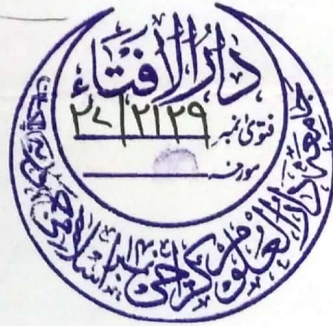 دارالافتاء
فتویٰ نمبر ۲۱۲۹/۲۷
مورخہ
جامعہ دارالعلوم کراچی